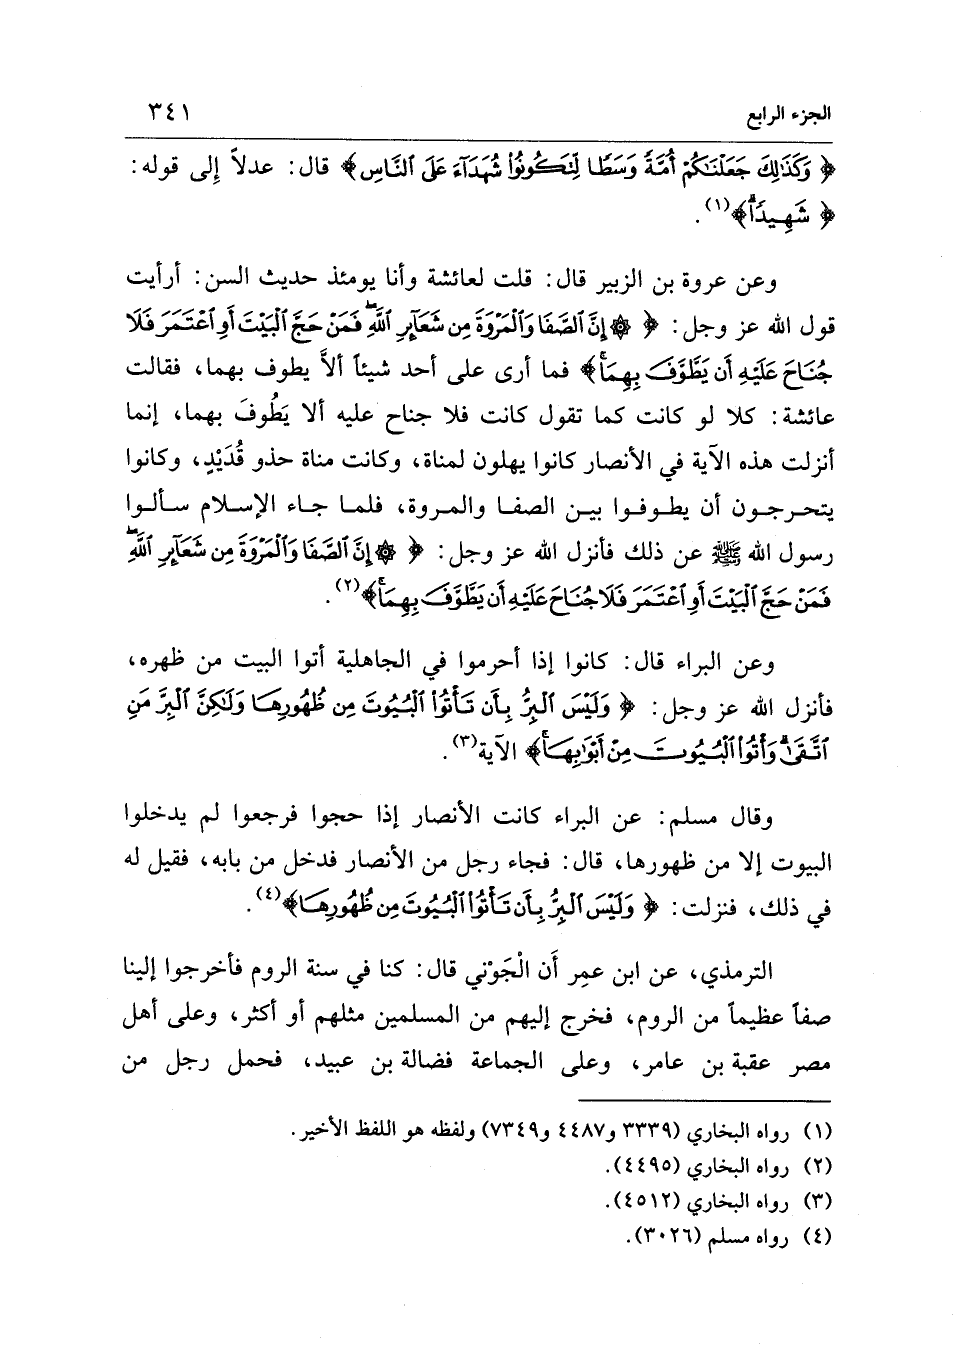 الجزء الرابع ٣٤١
﴿ وَكَذَٰلِكَ جَعَلْنَٰكُمْ أُمَّةً وَسَطًا لِّتَكُونُوا۟ شُهَدَآءَ عَلَى ٱلنَّاسِ ﴾ قال: عدلاً إلى قوله:
﴿ شَهِيدًاۗ ﴾(١).
وعن عروة بن الزبير قال: قلت لعائشة وأنا يومئذ حديث السن: أرأيت
قول الله عز وجل: ﴿ ۞ إِنَّ ٱلصَّفَا وَٱلْمَرْوَةَ مِن شَعَآئِرِ ٱللَّهِۖ فَمَنْ حَجَّ ٱلْبَيْتَ أَوِ ٱعْتَمَرَ فَلَا
جُنَاحَ عَلَيْهِ أَن يَطَّوَّفَ بِهِمَاۚ ﴾ فما أرى على أحد شيئاً ألاَّ يطوف بهما، فقالت
عائشة: كلا لو كانت كما تقول كانت فلا جناح عليه ألا يَطُوفَ بهما، إنما
أنزلت هذه الآية في الأنصار كانوا يهلون لمناة، وكانت مناة حذو قُدَيْدٍ، وكانوا
يتحرجون أن يطوفوا بين الصفا والمروة، فلما جاء الإسلام سألوا
رسول الله ﷺ عن ذلك فأنزل الله عز وجل: ﴿ ۞ إِنَّ ٱلصَّفَا وَٱلْمَرْوَةَ مِن شَعَآئِرِ ٱللَّهِۖ
فَمَنْ حَجَّ ٱلْبَيْتَ أَوِ ٱعْتَمَرَ فَلَا جُنَاحَ عَلَيْهِ أَن يَطَّوَّفَ بِهِمَاۚ ﴾(٢).
وعن البراء قال: كانوا إذا أحرموا في الجاهلية أتوا البيت من ظهره،
فأنزل الله عز وجل: ﴿ وَلَيْسَ ٱلْبِرُّ بِأَن تَأْتُوا۟ ٱلْبُيُوتَ مِن ظُهُورِهَا وَلَٰكِنَّ ٱلْبِرَّ مَنِ
ٱتَّقَىٰۗ وَأْتُوا۟ ٱلْبُيُوتَ مِنْ أَبْوَٰبِهَاۚ ﴾ الآية(٣).
وقال مسلم: عن البراء كانت الأنصار إذا حجوا فرجعوا لم يدخلوا
البيوت إلا من ظهورها، قال: فجاء رجل من الأنصار فدخل من بابه، فقيل له
في ذلك، فنزلت: ﴿ وَلَيْسَ ٱلْبِرُّ بِأَن تَأْتُوا۟ ٱلْبُيُوتَ مِن ظُهُورِهَا ﴾(٤).
الترمذي، عن ابن عمِر أَن الْجَوْني قال: كنا في سنة الروم فأخرجوا إلينا
صفاً عظيماً من الروم، فخرج إليهم من المسلمين مثلهم أو أكثر، وعلى أهل
مصر عقبة بن عامر، وعلى الجماعة فضالة بن عبيد، فحمل رجل من
(١) رواه البخاري (٣٣٣٩ و٤٤٨٧ و٧٣٤٩) ولفظه هو اللفظ الأخير.
(٢) رواه البخاري (٤٤٩٥).
(٣) رواه البخاري (٤٥١٢).
(٤) رواه مسلم (٣٠٢٦).